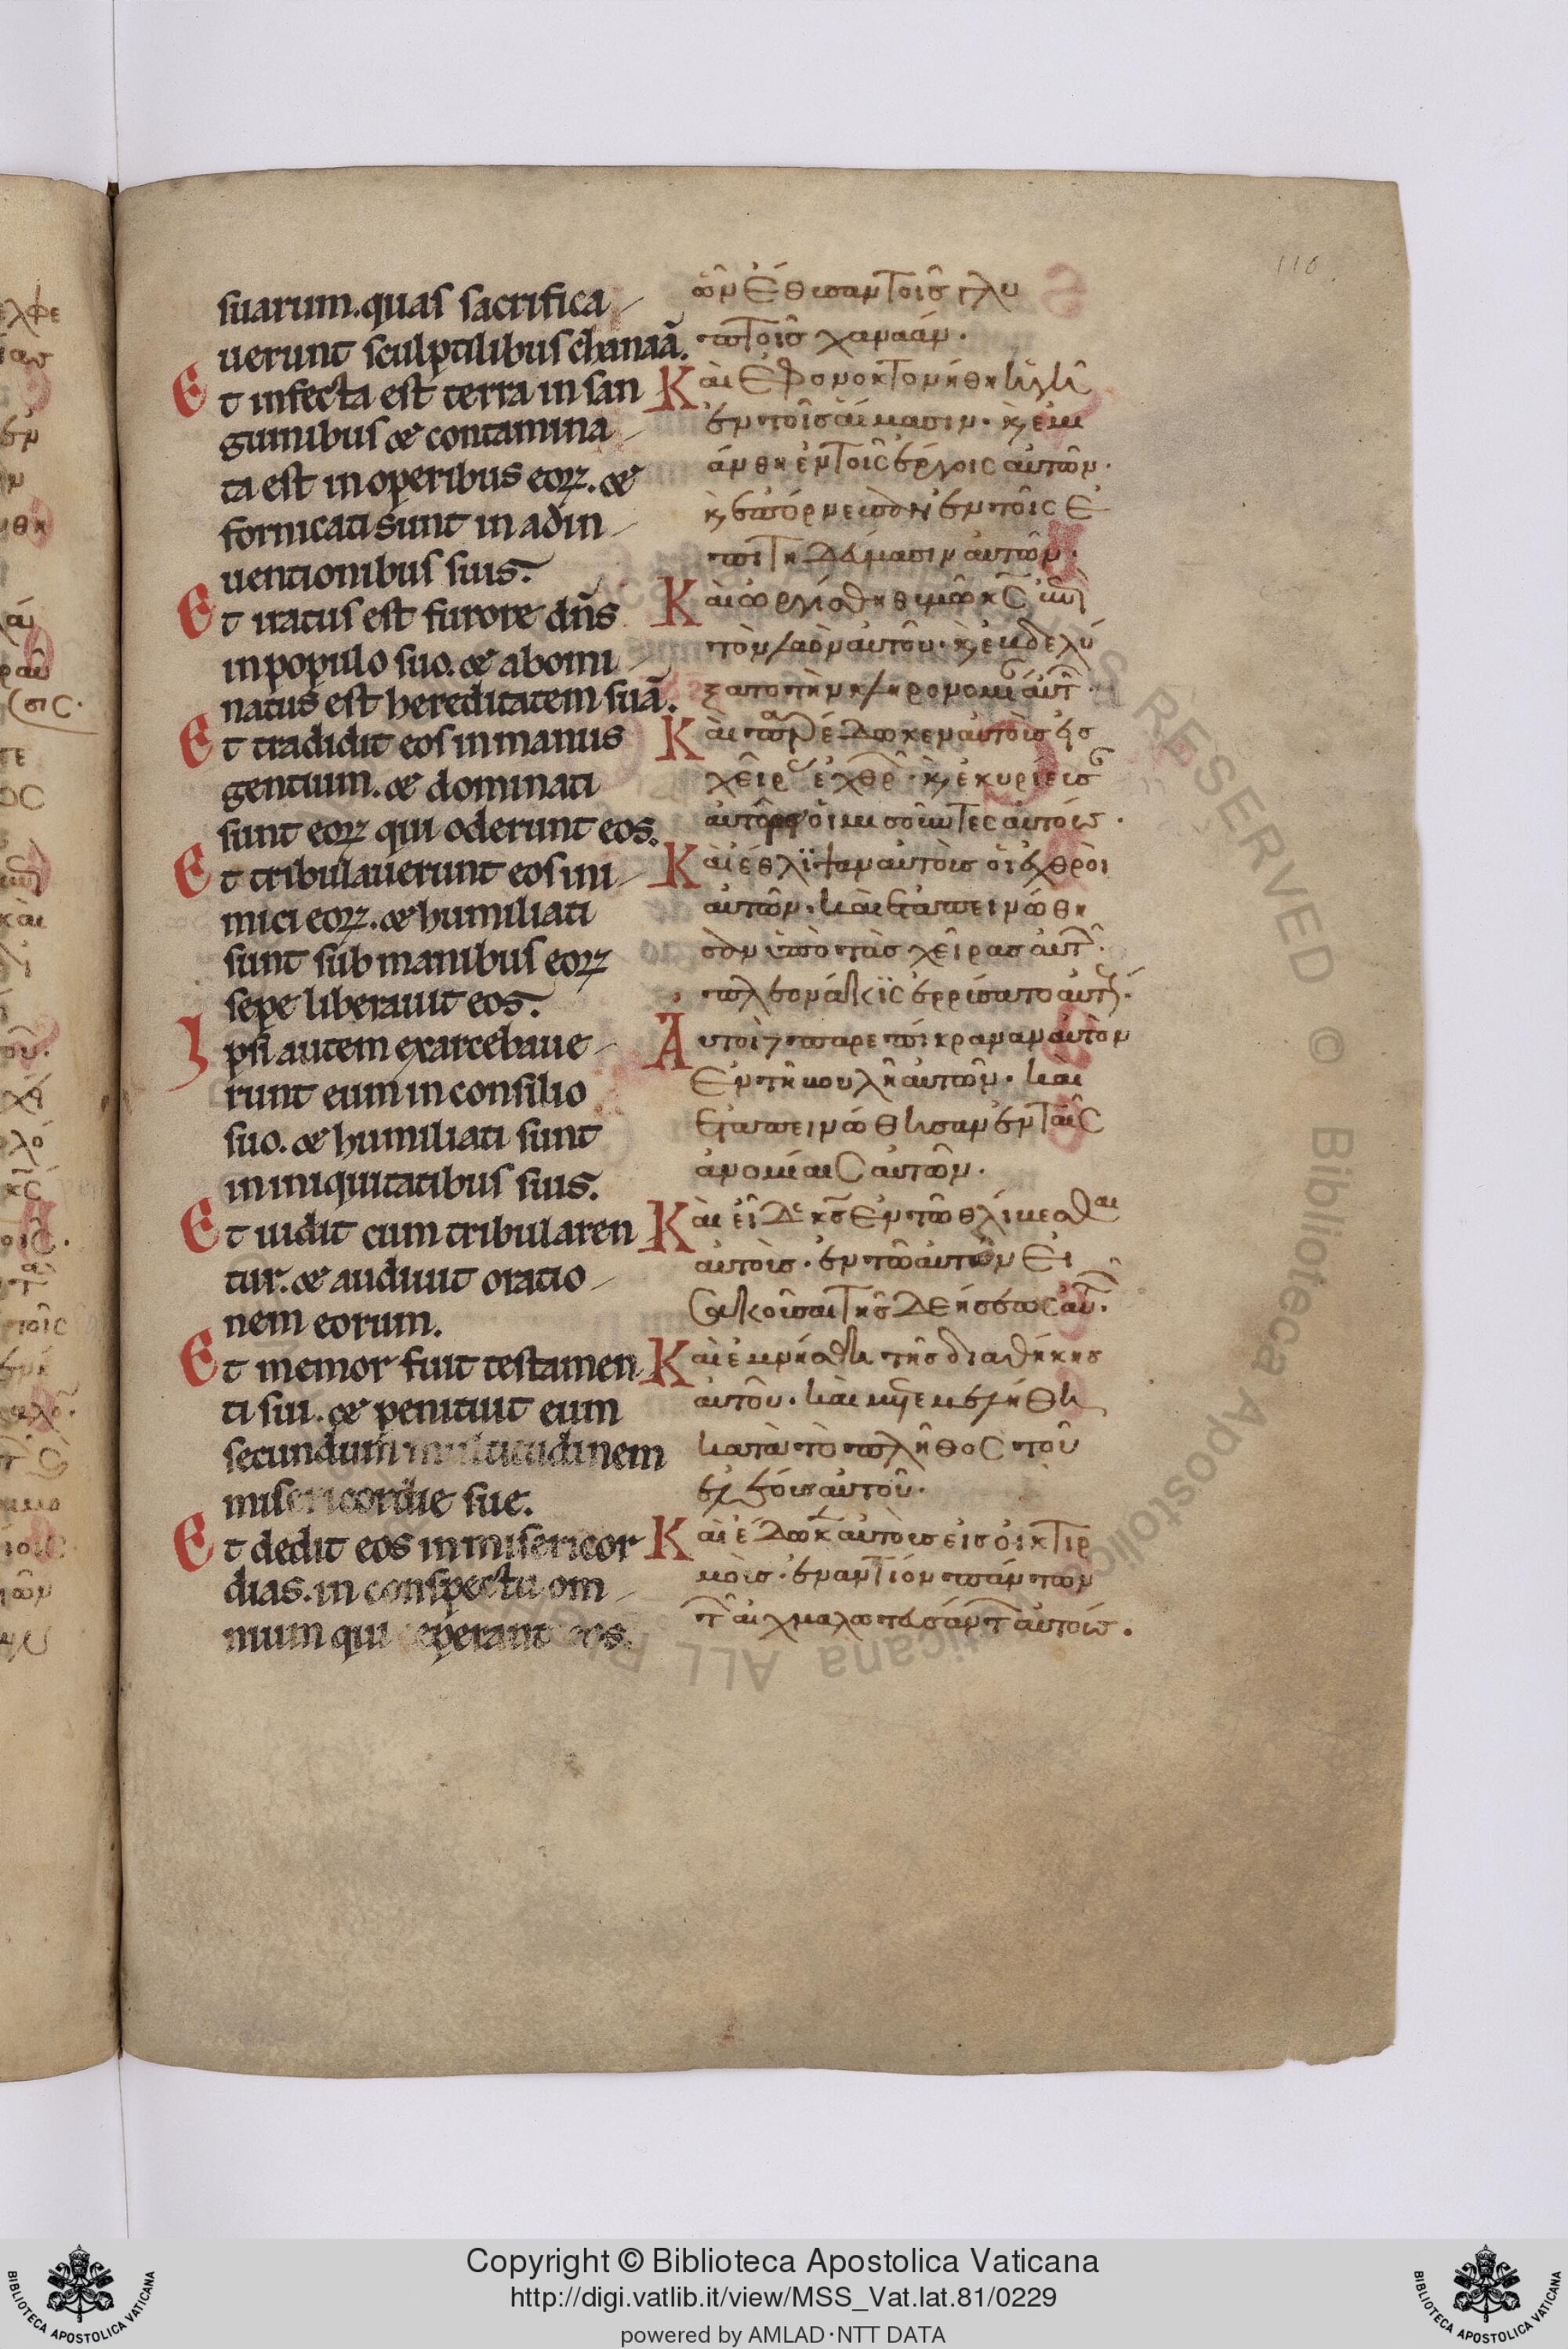 suarum. quas sacrifica
uerunt sculptilibus chanaã.
Et infecta est terra in san
guinibus & contamina
ta est in operibus eoꝝ. &
fornicati sunt in adin
uentionibus suis.
Et iratus est furore dn̄s
in populo suo. & abomi
natus est hereditatem suã.
Et tradidit eos in manus
gentium. & dominati
sunt eoꝝ qui oderunt eos.
Et tribulauerunt eos ini
mici eoꝝ. & humiliati
sunt sub manibus eoꝝ
sepe liberauit eos.
Ipsi autem exarcebaue
runt eum in consilio
suo. & humiliati sunt
in iniquitatibus suis.
Et uidit cum tribularen
tur. & audiuit oratio
nem eorum.
Et memor fuit testamen
ti sui. & penituit eum
secundum multitudinem
misericordie sue.
Et dedit eos in misericor
dias. in conspectu om
nium qui ceperant eos.
ὧν ἔθυσαν τοῖς γλυ
πτοῖς χαναάν.
Καὶ ἐφονοκτονήθη ἡ γῆ
ἐν τοῖς αἵμασιν. κ̀ ἐμι
άνθη ἐν τοῖς ἔργοις αὐτῶν.
κ̀ ἐπόρνευσαν ἐν τοῖς ἐ
πιτηδεύμασιν αὐτῶν.
Καὶ ὠργίσθη θυμῶ κς ἐπὶ
τὸν λαὸν αὐτοῦ. κ̀ ἐβδελύ
ξατο τὴν κληρονομίαν αὐτ.
Καὶ παρέδωκεν αὐτοὺς εἰς
χεῖρας ἐχθρ. κ̀ ἐκυρίευσ
αὐτῶν οἱ μισοῦντες αὐτούς.
Καὶ ἔθλιψαν αὐτοὺς οἱ ἐχθροὶ
αὐτῶν. καὶ ἐταπεινώθη
σαν ὑπὸ τὰς χεῖρας αὐτ.
πλεονάκις ἐρρύσατο αὐτ.
Αὐτοὶ δὲ παρεπίκραναν αὐτὸν
ἐν τῆ βουλῆ αὐτῶν. καὶ
ἐταπεινώθησαν ἐν ταῖς
ἀνομίαις αὐτῶν.
Καὶ εἶδε κς ἐν τῶ θλίβεσθαι
αὐτοὺς. ἐν τῶ αὐτὸν εἰ
σακοῦσαι τῆς δεήσεως αὐ.
Καὶ ἐμνήσθη τῆς διαθήκης
αὐτοῦ. καὶ μετεμελήθη
κατὰ τὸ πλῆθος τοῦ
ἐλέους αὐτοῦ.
Καὶ ἔδωκ αὐτοὺς εἰς οἰκτιρ
μοὺς. ἐναντίον πάντων
τ αἰχμαλωτευσάντ αὐτούς.
110
Copyright © Biblioteca Apostolica Vaticana
http://digi.vatlib.it/view/MSS_Vat.lat.81/0229
powered by AMLAD·NTT DATA
BIBLIOTECA APOSTOLICA VATICANA
BIBLIOTECA APOSTOLICA VATICANA